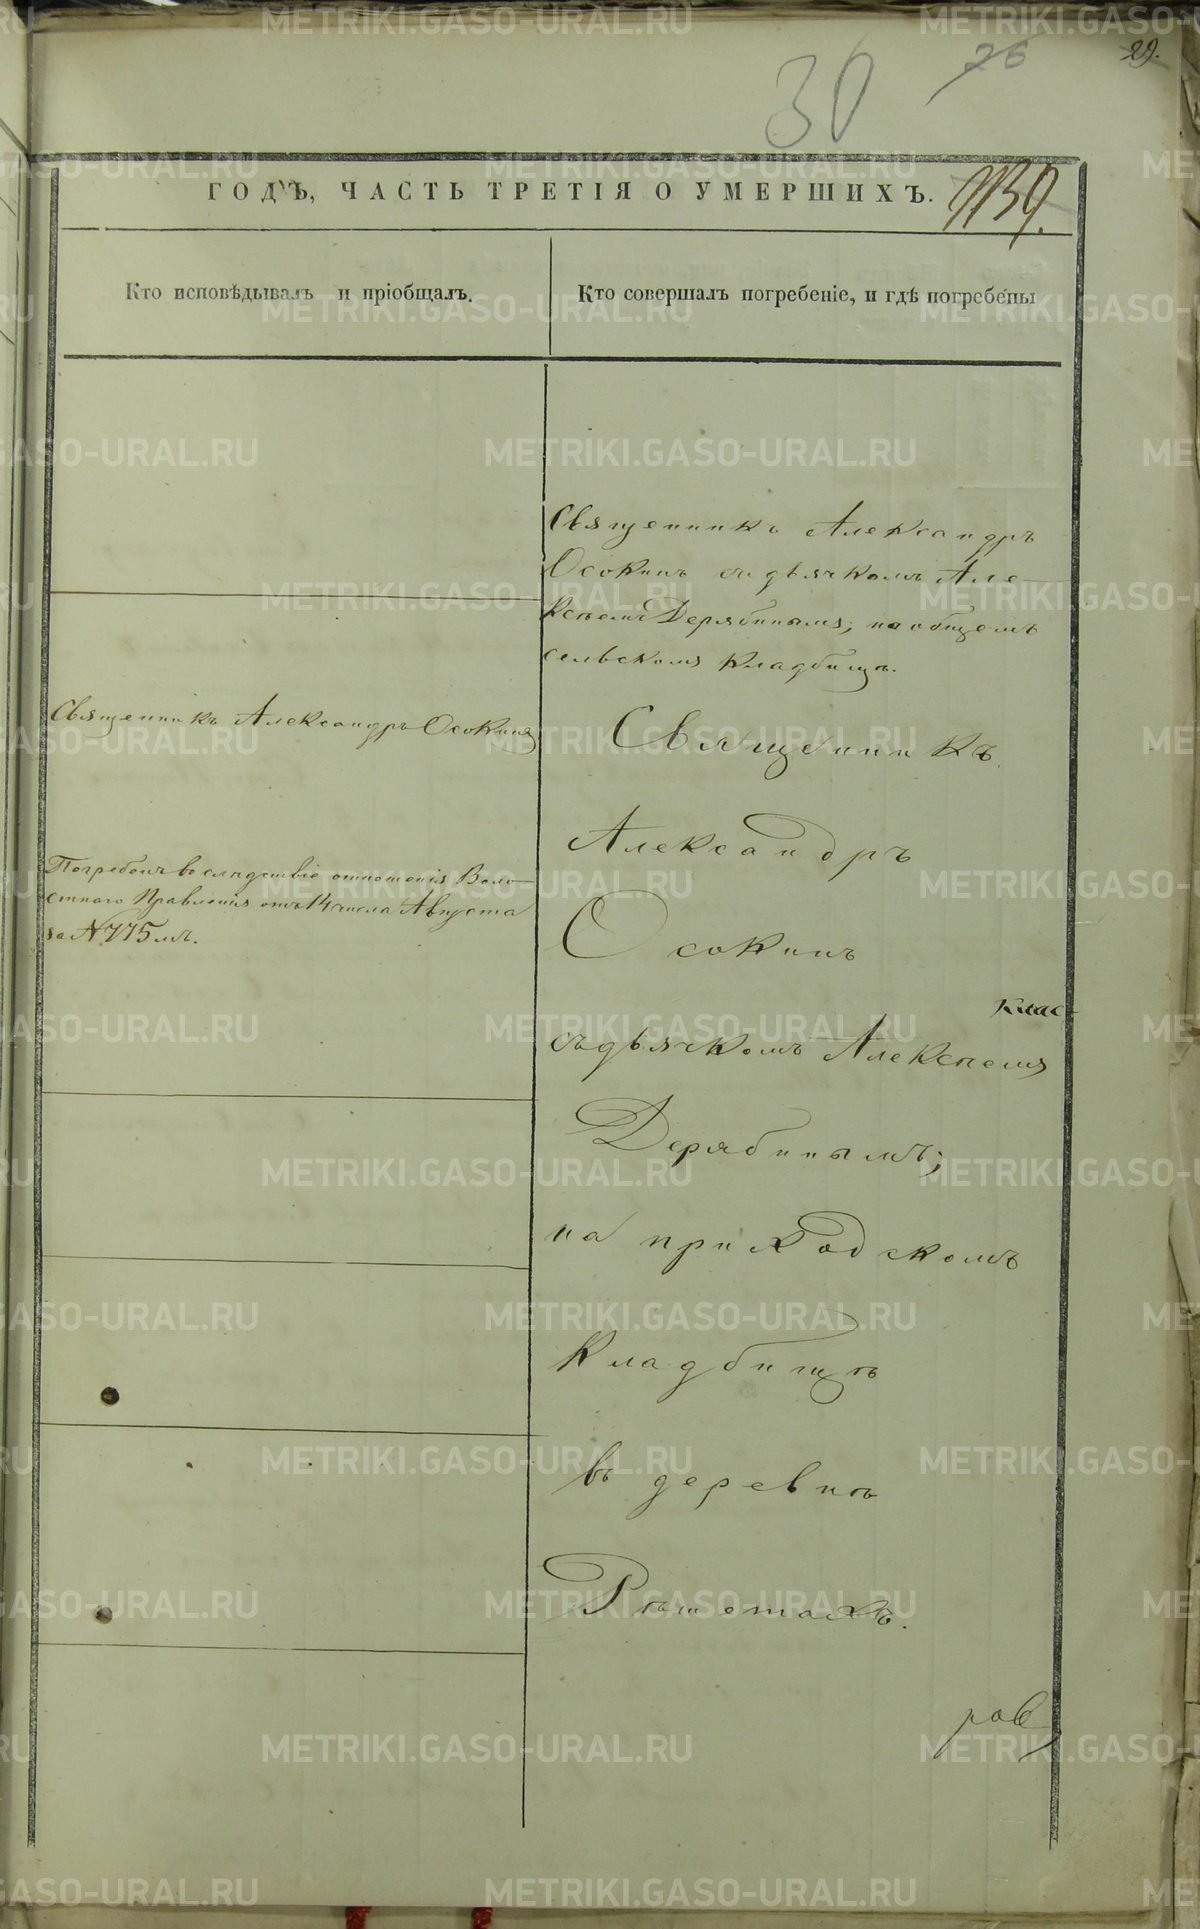 30
26
29.
ГОДЪ, ЧАСТЬ ТРЕТІЯ О УМЕРШИХЪ.
Кто исповѣдывалъ и пріобщалъ.
Кто совершалъ погребеніе, и гдѣ погребены
Священникъ Александръ Осокинъ
Погребенъ вслѣдствіе отношенія Воло-
стнаго Правленія отъ 14 числа Августа
за № 775 мъ.
Священникъ Александръ
Осокинъ съ дьячкомъ Але-
ксѣемъ Дерябинымъ; на общемъ
сельскомъ кладбищѣ.
Священникъ
Александръ
Осокинъ
съ дьячкомъ Алексѣемъ
Дерябинымъ;
на приходскомъ
кладбищѣ
въ деревнѣ
Рѣшетахъ.
METRIKI.GASO-URAL.RU